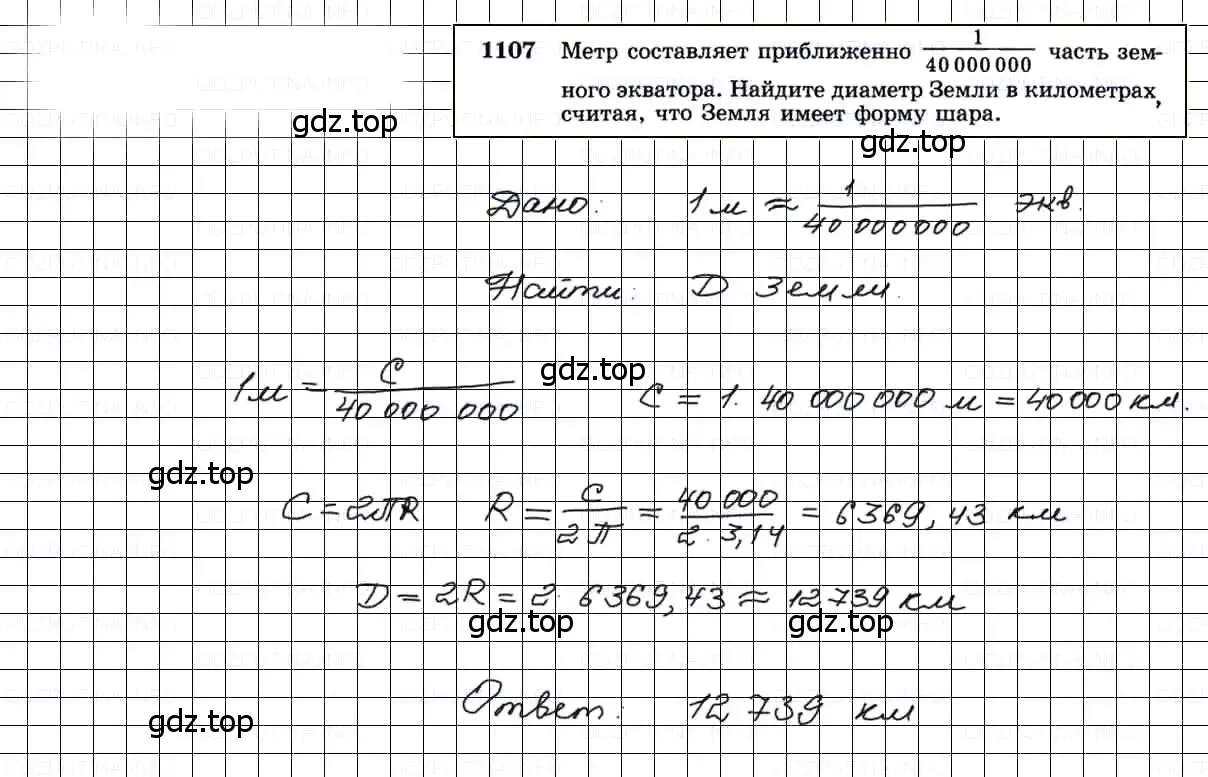 1107 Метр составляет приближенно 1/40 000 000 часть зем-
ного экватора. Найдите диаметр Земли в километрах,
считая, что Земля имеет форму шара.
gdz.top
gdz.top
Дано: 1 м ≈ 1/40 000 000 экв.
Найти: D Земли.
gdz.top
gdz.top
1 м = C/40 000 000 C = 1. 40 000 000 м = 40 000 км.
gdz.top
C = 2πR R = C/2π = 40 000/2 · 3,14 = 6369,43 км
D = 2R = 2· 6369,43 ≈ 12 739 км
gdz.top
gdz.top
Ответ: 12 739 км
gdz.top